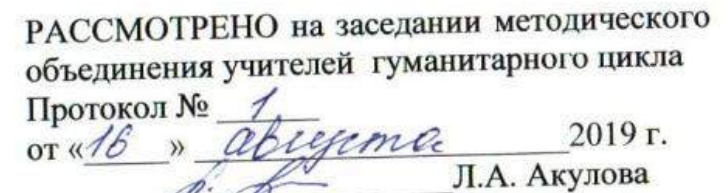 РАССМОТРЕНО на заседании методического
объединения учителей гуманитарного цикла
Протокол № 1
от «16» августа 2019 г.
Л.А. Акулова